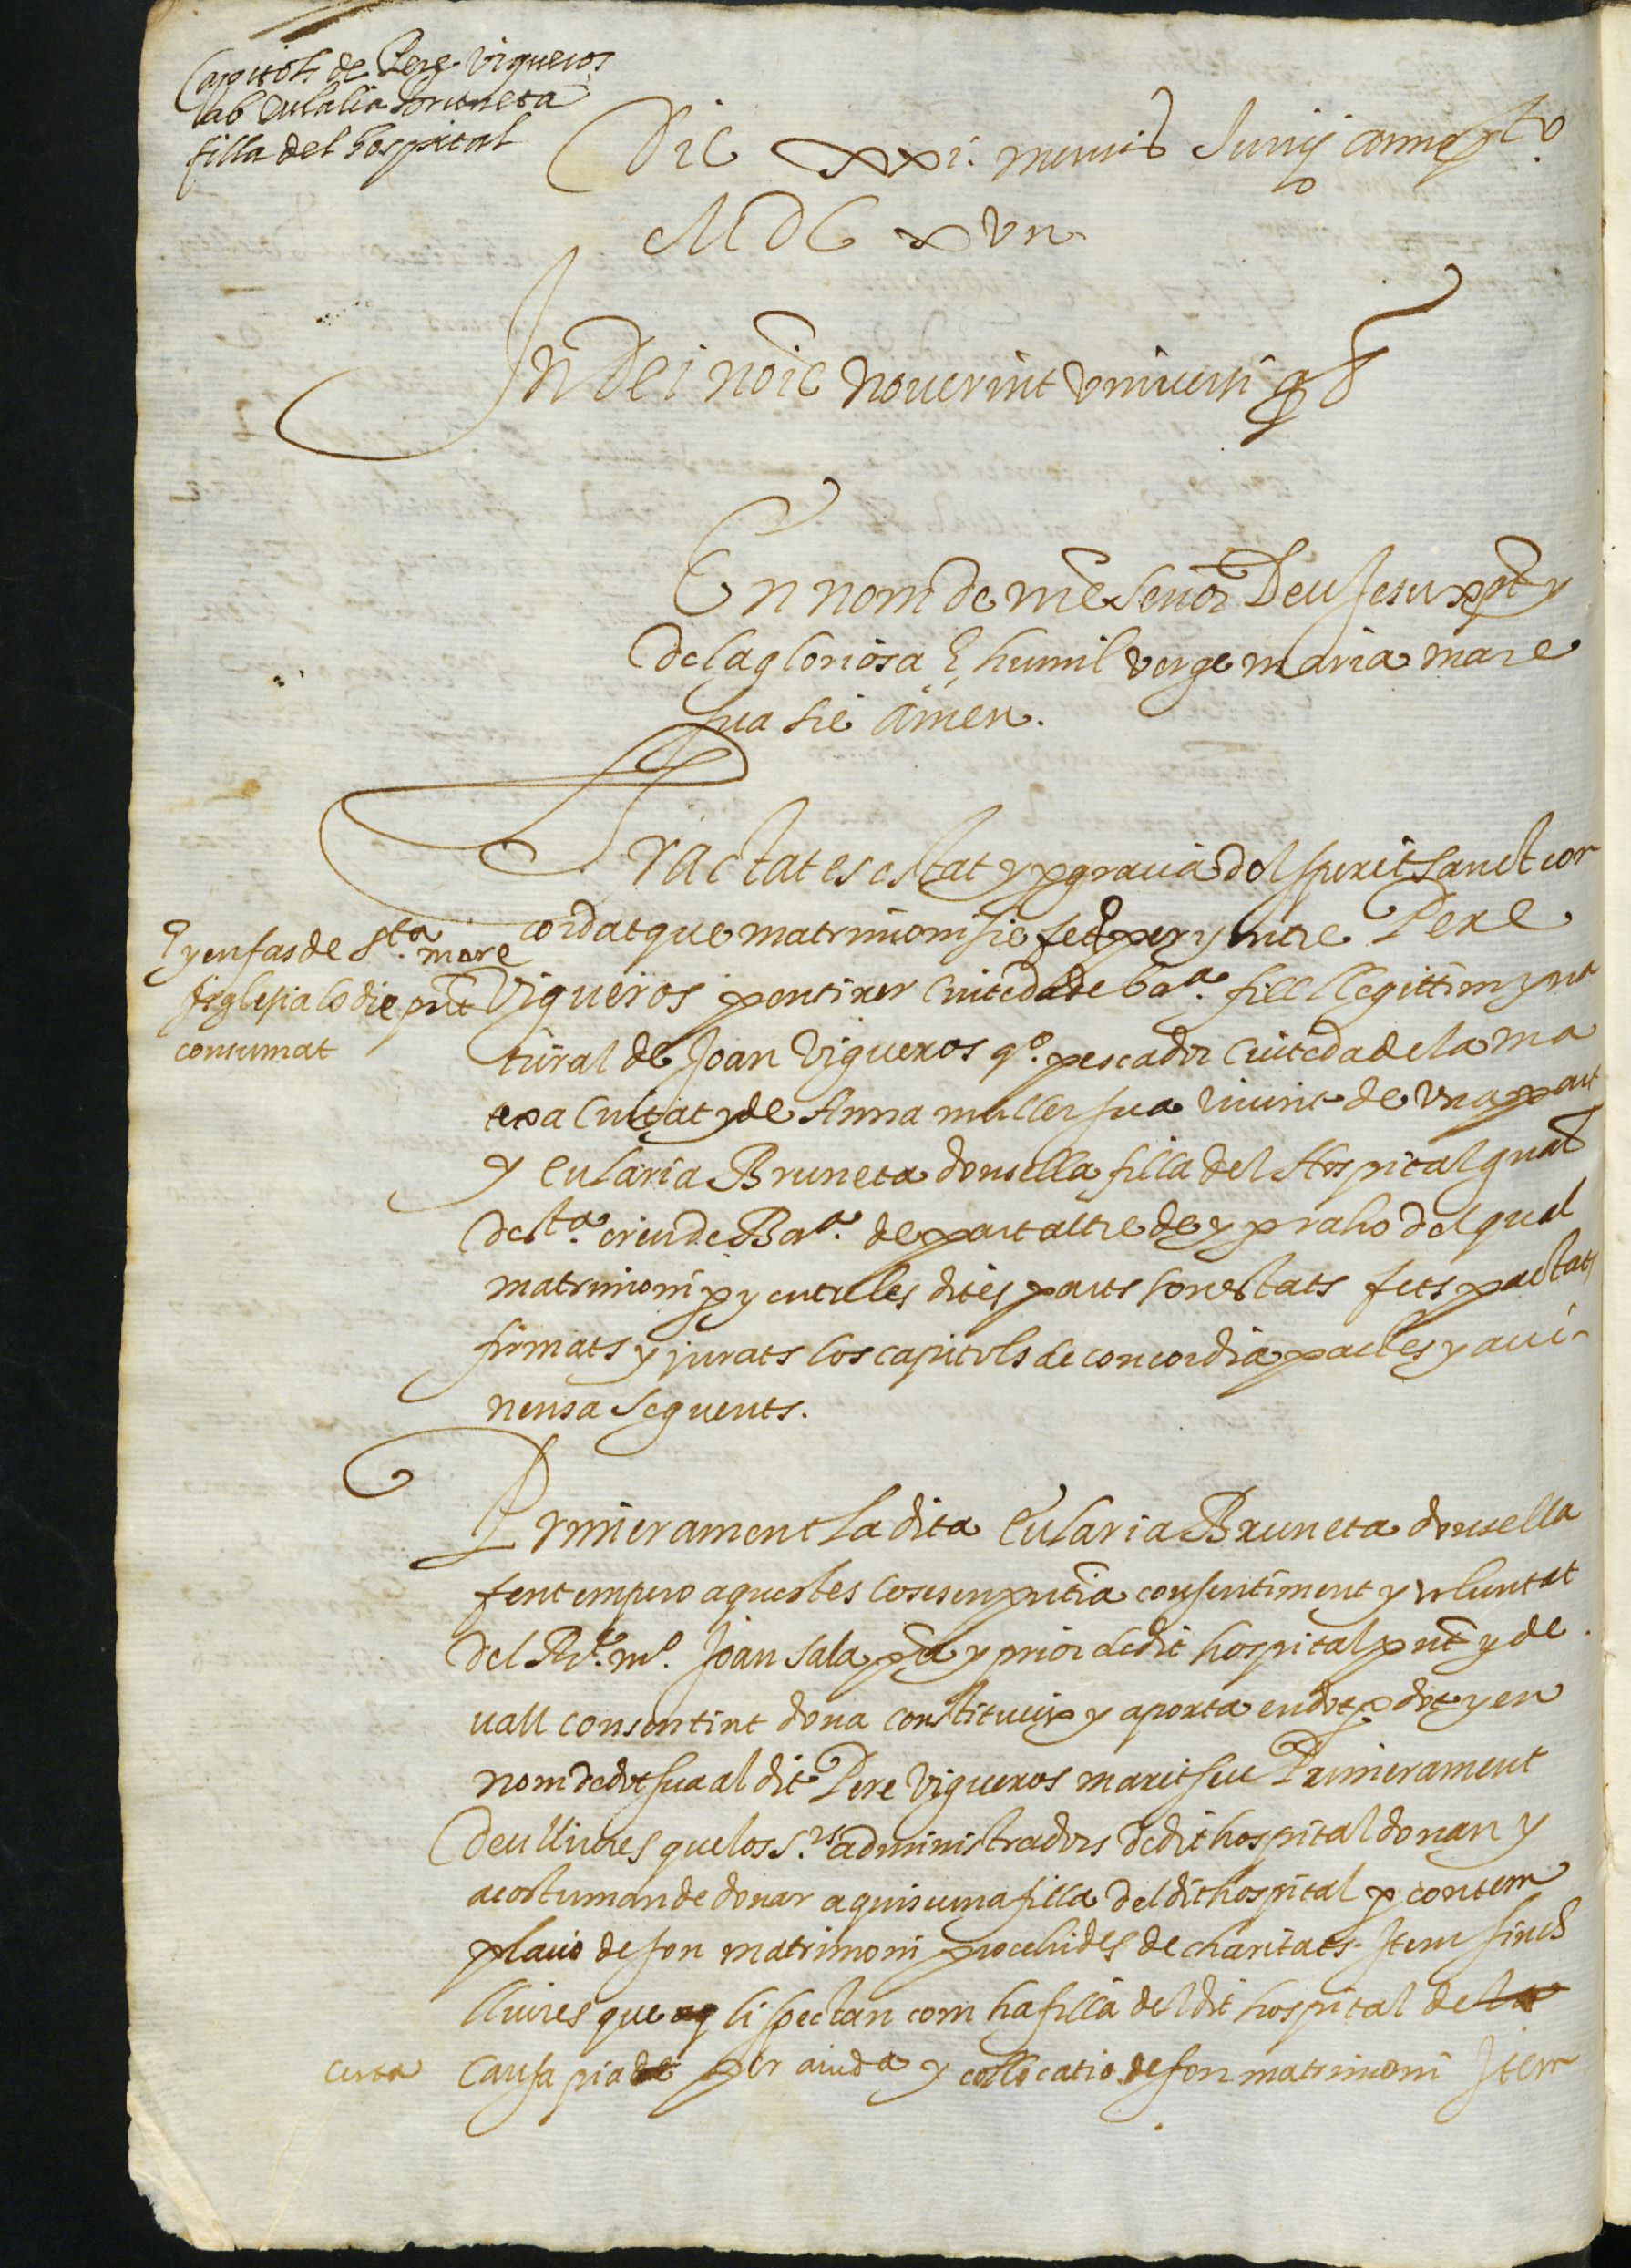 Capitols de Pere Vigueros
ab Eulalia Bruneta
filla del hospital
Die xxi. mensis Junij anno pto
MDCxvii
In Dei noie noverint universi qd
En nom de nre Senor Deu Jesu xpt y
de la gloriosa E humil verge maria mare
sua sie Amen.
Tractat es estat y p gracia del sperit sanct con
cordat que matrimoni sie fet per y entre Pere
Vigueros pentiner Ciutedá de Bara. fill llegittim y na
tural de Joan Vigueros qo. pescador Ciutedá de la ma
texa Ciutat y de Anna muller sua vivint de una part
y Eularia Bruneta donsella filla del Hospital gnal
de sta. creu de Bara. de part altre de y p raho del qual
matrimoni p y entre les dites parts son estats fets pactats
firmats y jurats los capitols de concordia pactes y avi-
nensa seguents.
y en fas de Sta. mare
Iglesia lo die pnt
consumat
Primerament la dita Eularia Bruneta donsella
fent empero aquestes coses en pntia consentiment y voluntat
del Rt. mo. Joan Sala pre y prior de dit hospital pnt y de
vall consentint dona constitueix y aporta en dot p dot y en
nom de dot sua al dit Pere Vigueros marit seu Primerament
deu lliures que los Srs administradors de dit hospital donan y
acostuman de donar a quiscuna filla del dit hospital p contem
placio de son matrimoni procehides de charitats. Item sinch
lliures que li spectan com ha filla del dit hospital de la
certa
Causa pia de per aiuda y collocatio de son matrimoni Item